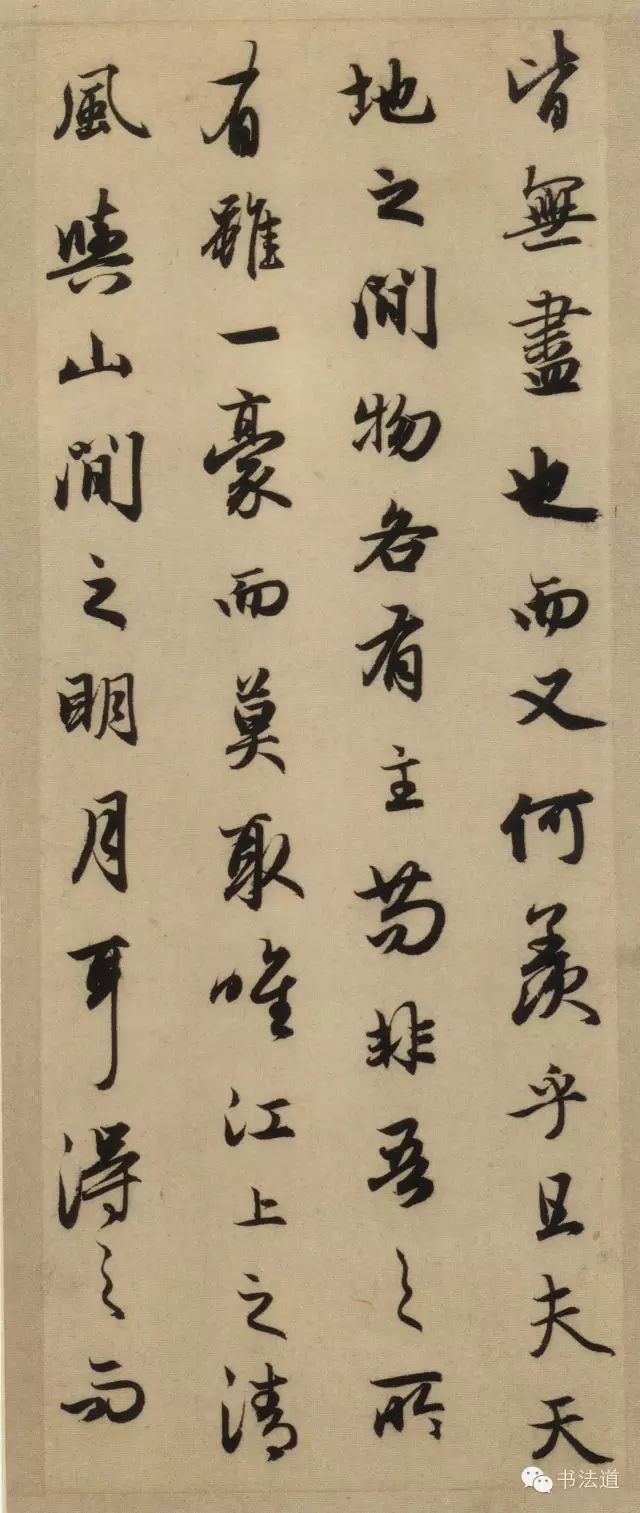 皆無盡也而又何羨乎且夫天
地之間物各有主茍非吾之所
有雖一豪而莫取唯江上之清
風與山間之明月耳得之而
书法道